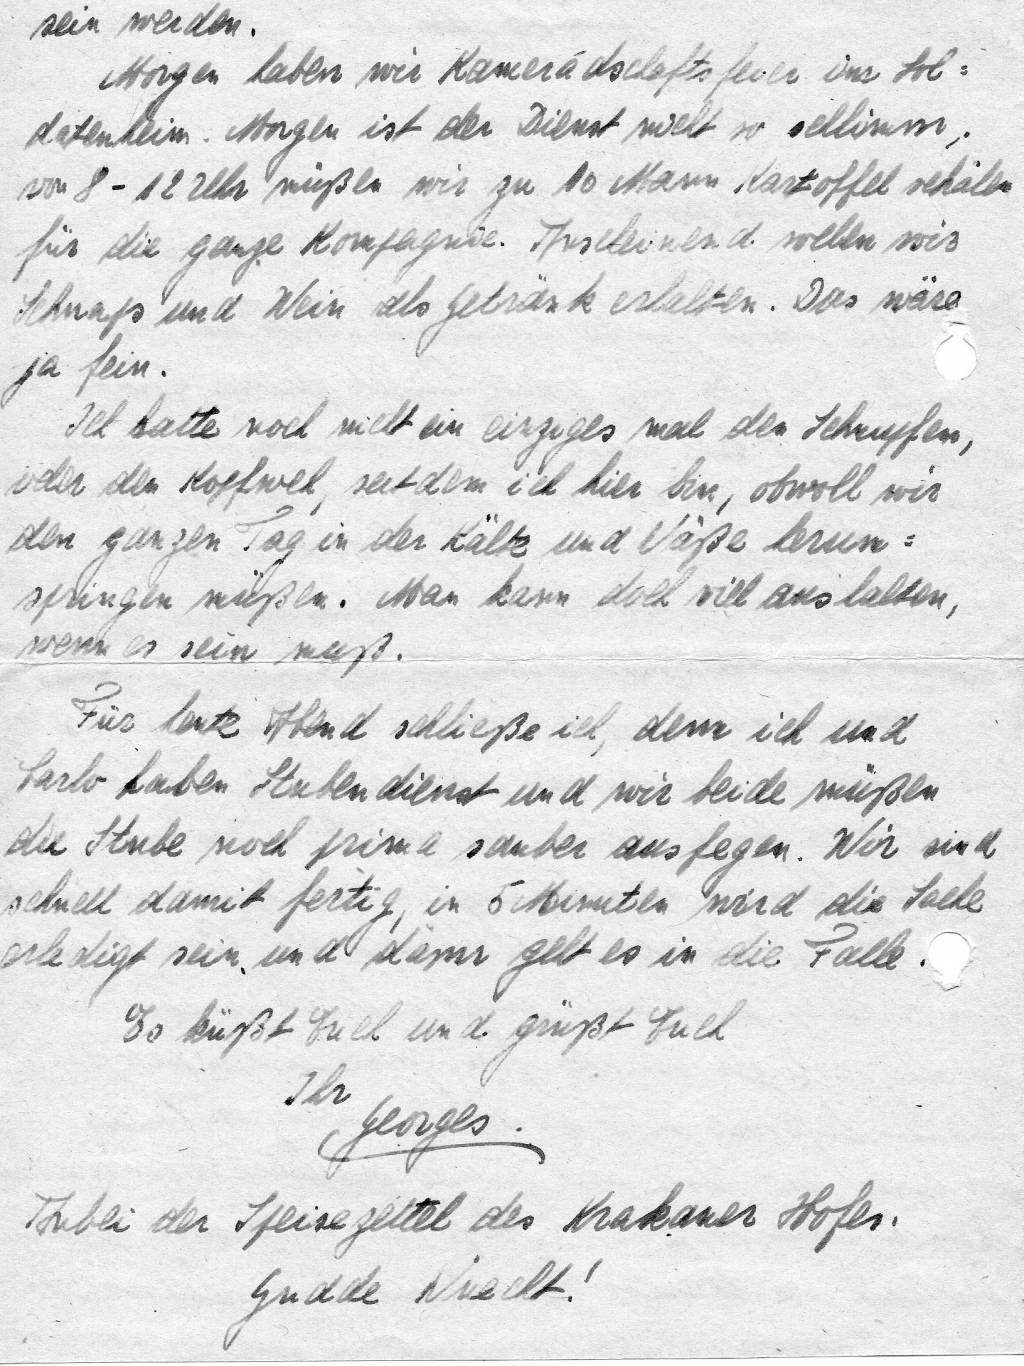 sein werden.
Morgen haben wir Kameradschaftsfeier im Sol=
datenheim. Morgen ist der Dienst nicht so schlimm,
von 8 - 12 Uhr müßen wir zu 10 Mann Kartoffel schälen
für die ganze Kompagnie. Anscheinend sollen wir
Schnaps und Wein als Getränk erhalten. Das wäre
ja fein.
Ich hatte noch nicht ein einziges mal den Schnupfen,
oder den Kopfweh, seitdem ich hier bin, obwohl wir
den ganzen Tag in der Kälte und Näße herum=
springen müßen. Man kann doch viel aushalten,
wenn es sein muß.
Für heute Abend schließe ich, denn ich und
Carlo haben Stubendienst und wir beide müßen
die Stube noch prima sauber ausfegen. Wir sind
schnell damit fertig, in 5 Minuten wird die Sache
erledigt sein, und dann geht es in die Falle.
Es küßt Euch und grüßt Euch
Ihr
Georges.
Anbei der Speisezettel des Krakauer Hofes.
Gudde Nuecht!